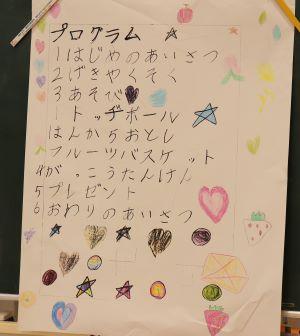 プログラム
1 はじめのあいさつ
2 げきやくそく
3 あそび
ードッヂボール
はんかちおとし
フルーツバスケット
4 が。こうたんけん
5 プレゼント
6 おわりのあいさつ